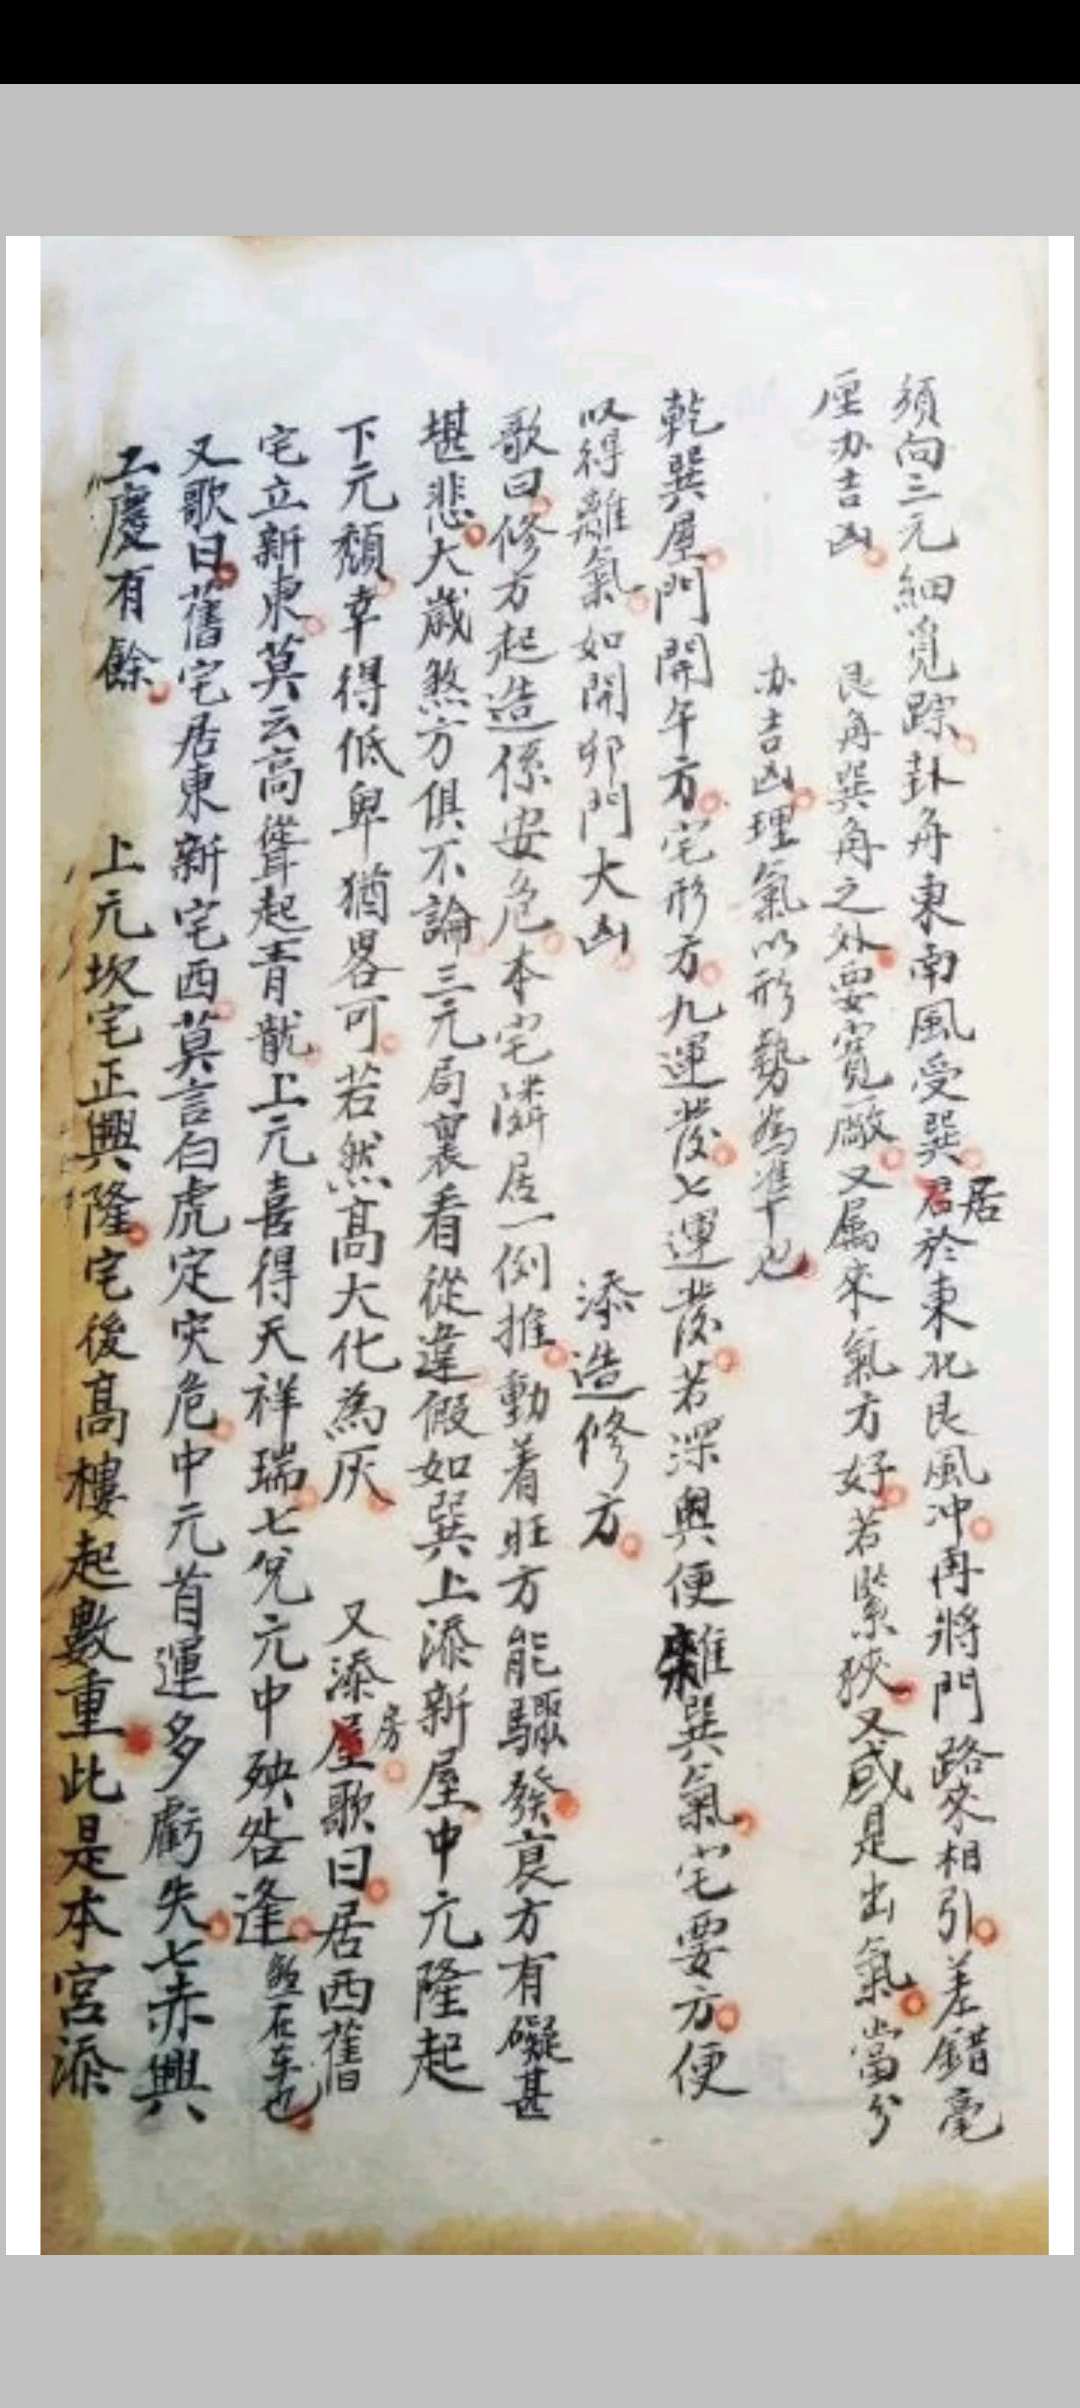 須向三元細覓踪卦角東南風受巽居於東北艮風冲再將門路來相引差錯毫
厘办吉凶　艮角巽角之外要寬廠又屬來氣方好若緊狹又或是出氣當分
办吉凶理氣以形勢為準也
乾巽屋門開午方宅形方九運發七運發若深奥便雜巽氣宅要方便
以得離氣如開卯門大凶　添造修方
歌曰修方起造係安危本宅隣居一例推動着旺方能驟發衰方有礙甚
堪悲大歲煞方俱不論三元局裏看從違假如巽上添新屋中元隆起
下元頹幸得低卑猶畧可若然高大化為灰　又添房歌曰居西舊
宅立新東莫云高聳起青龍上元喜得天祥瑞七兌元中殃咎逢煞在车也
又歌曰舊宅居東新宅西莫言白虎定灾危中元首運多虧失七赤興
工慶有餘　上元坎宅正興隆宅後高樓起數重此是本宮添